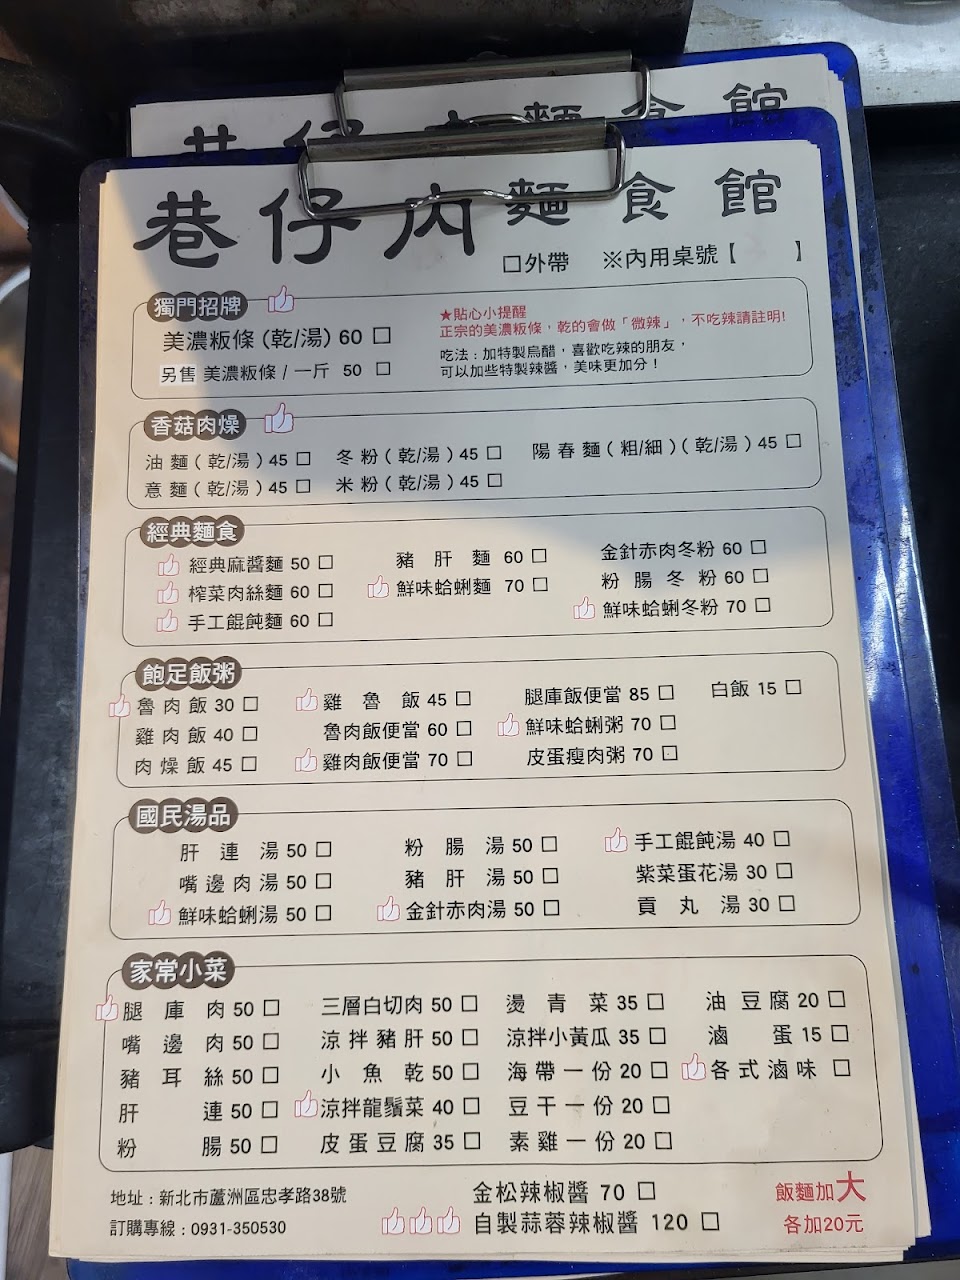 巷仔內麵食館
巷仔內麵食館
□外帶 ※內用桌號【 】
獨門招牌
美濃粄條(乾/湯) 60 □
另售 美濃粄條/一斤 50 □
★貼心小提醒
正宗的美濃粄條，乾的會做「微辣」，不吃辣請註明!
吃法：加特製烏醋，喜歡吃辣的朋友，
可以加些特製辣醬，美味更加分！
香菇肉燥
油麵(乾/湯)45 □ 冬粉(乾/湯)45 □ 陽春麵(粗/細)(乾/湯)45 □
意麵(乾/湯)45 □ 米粉(乾/湯)45 □
經典麵食
經典麻醬麵 50 □ 豬肝麵 60 □ 金針赤肉冬粉 60 □
榨菜肉絲麵 60 □ 鮮味蛤蜊麵 70 □ 粉腸冬粉 60 □
手工餛飩麵 60 □ 鮮味蛤蜊冬粉 70 □
飽足飯粥
魯肉飯 30 □ 雞魯飯 45 □ 腿庫飯便當 85 □ 白飯 15 □
雞肉飯 40 □ 魯肉飯便當 60 □ 鮮味蛤蜊粥 70 □
肉燥飯 45 □ 雞肉飯便當 70 □ 皮蛋瘦肉粥 70 □
國民湯品
肝連湯 50 □ 粉腸湯 50 □ 手工餛飩湯 40 □
嘴邊肉湯 50 □ 豬肝湯 50 □ 紫菜蛋花湯 30 □
鮮味蛤蜊湯 50 □ 金針赤肉湯 50 □ 貢丸湯 30 □
家常小菜
腿庫肉 50 □ 三層白切肉 50 □ 燙青菜 35 □ 油豆腐 20 □
嘴邊肉 50 □ 涼拌豬肝 50 □ 涼拌小黃瓜 35 □ 滷蛋 15 □
豬耳絲 50 □ 小魚乾 50 □ 海帶一份 20 □ 各式滷味 □
肝連 50 □ 涼拌龍鬚菜 40 □ 豆干一份 20 □
粉腸 50 □ 皮蛋豆腐 35 □ 素雞一份 20 □
地址：新北市蘆洲區忠孝路38號 金松辣椒醬 70 □ 飯麵加大
訂購專線：0931-350530 自製蒜蓉辣椒醬 120 □ 各加20元